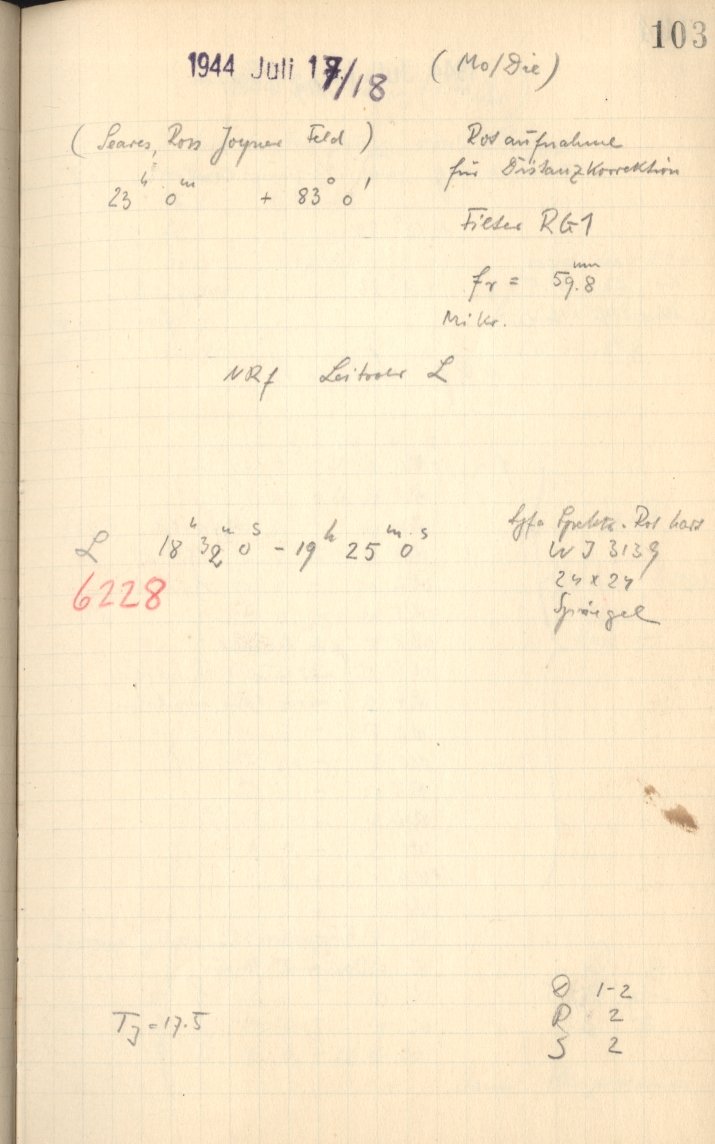 103
1944 Juli 17/18 (Mo/Die)
(Seares, Ross Joyner Feld)
23ʰ 0ᵐ + 83° 0'
Rotaufnahme
für Distanzkorrektion
Filter RG1
fr = 59.8ᵐᵐ
Mikr.
NRf Leitrohr L
L 18ʰ 32ᵐ 0ˢ - 19ʰ 25ᵐ 0ˢ
6228
Agfa Spektr. Rot hart
3139
24 x 24
Spiegel
= 17.5
1-2
2
S 2